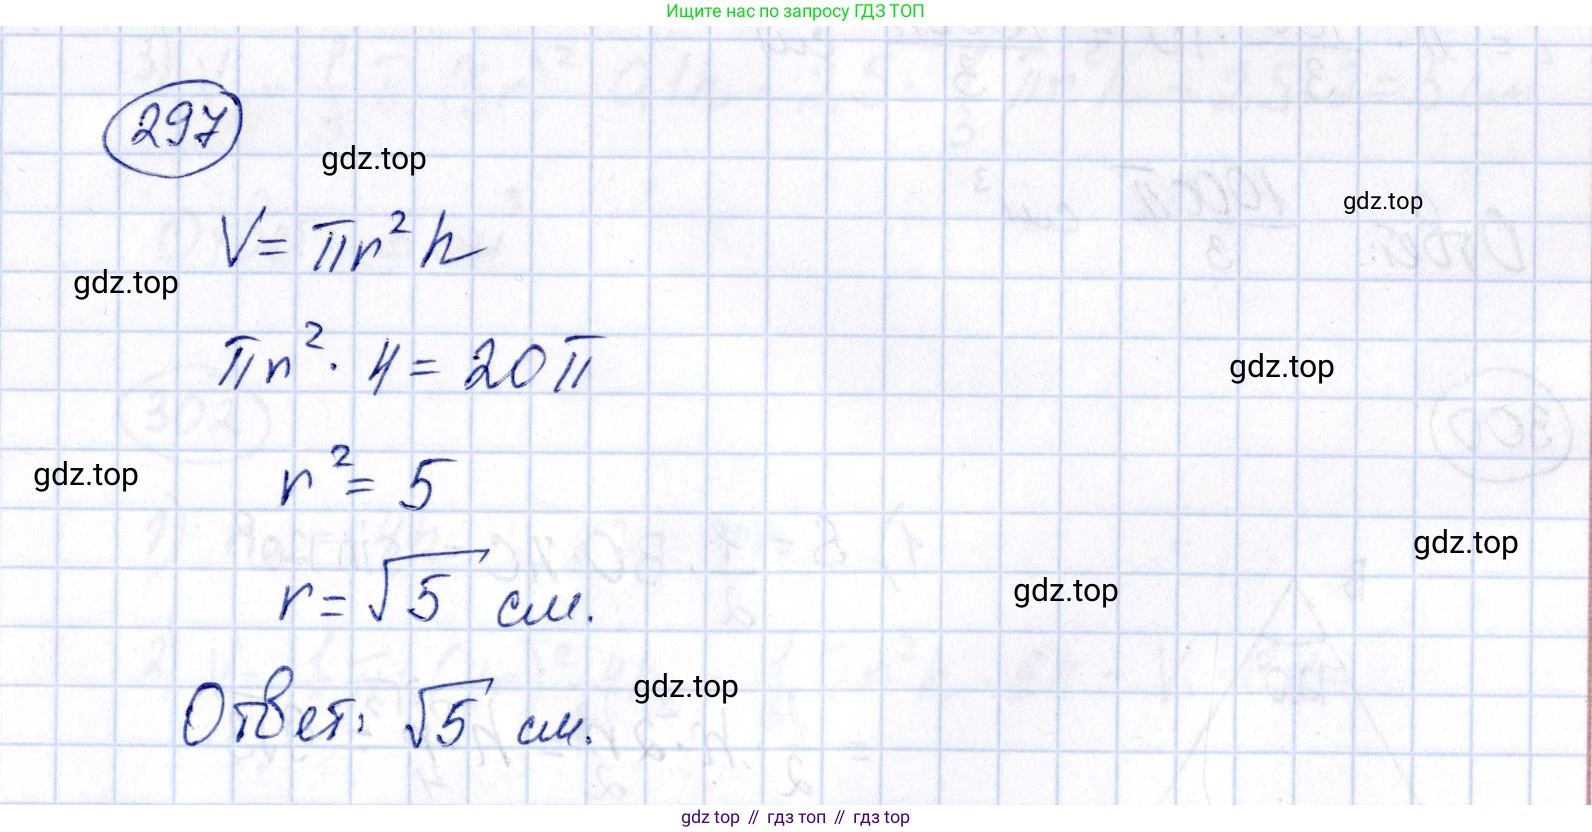 Ищите нас по запросу ГДЗ ТОП
297
gdz.top
gdz.top
V = πr² h
gdz.top
πr² · 4 = 20π
gdz.top
r² = 5
gdz.top
gdz.top
r = √5 см.
gdz.top
Ответ: √5 см.
gdz.top
gdz.top // гдз топ // гдз top